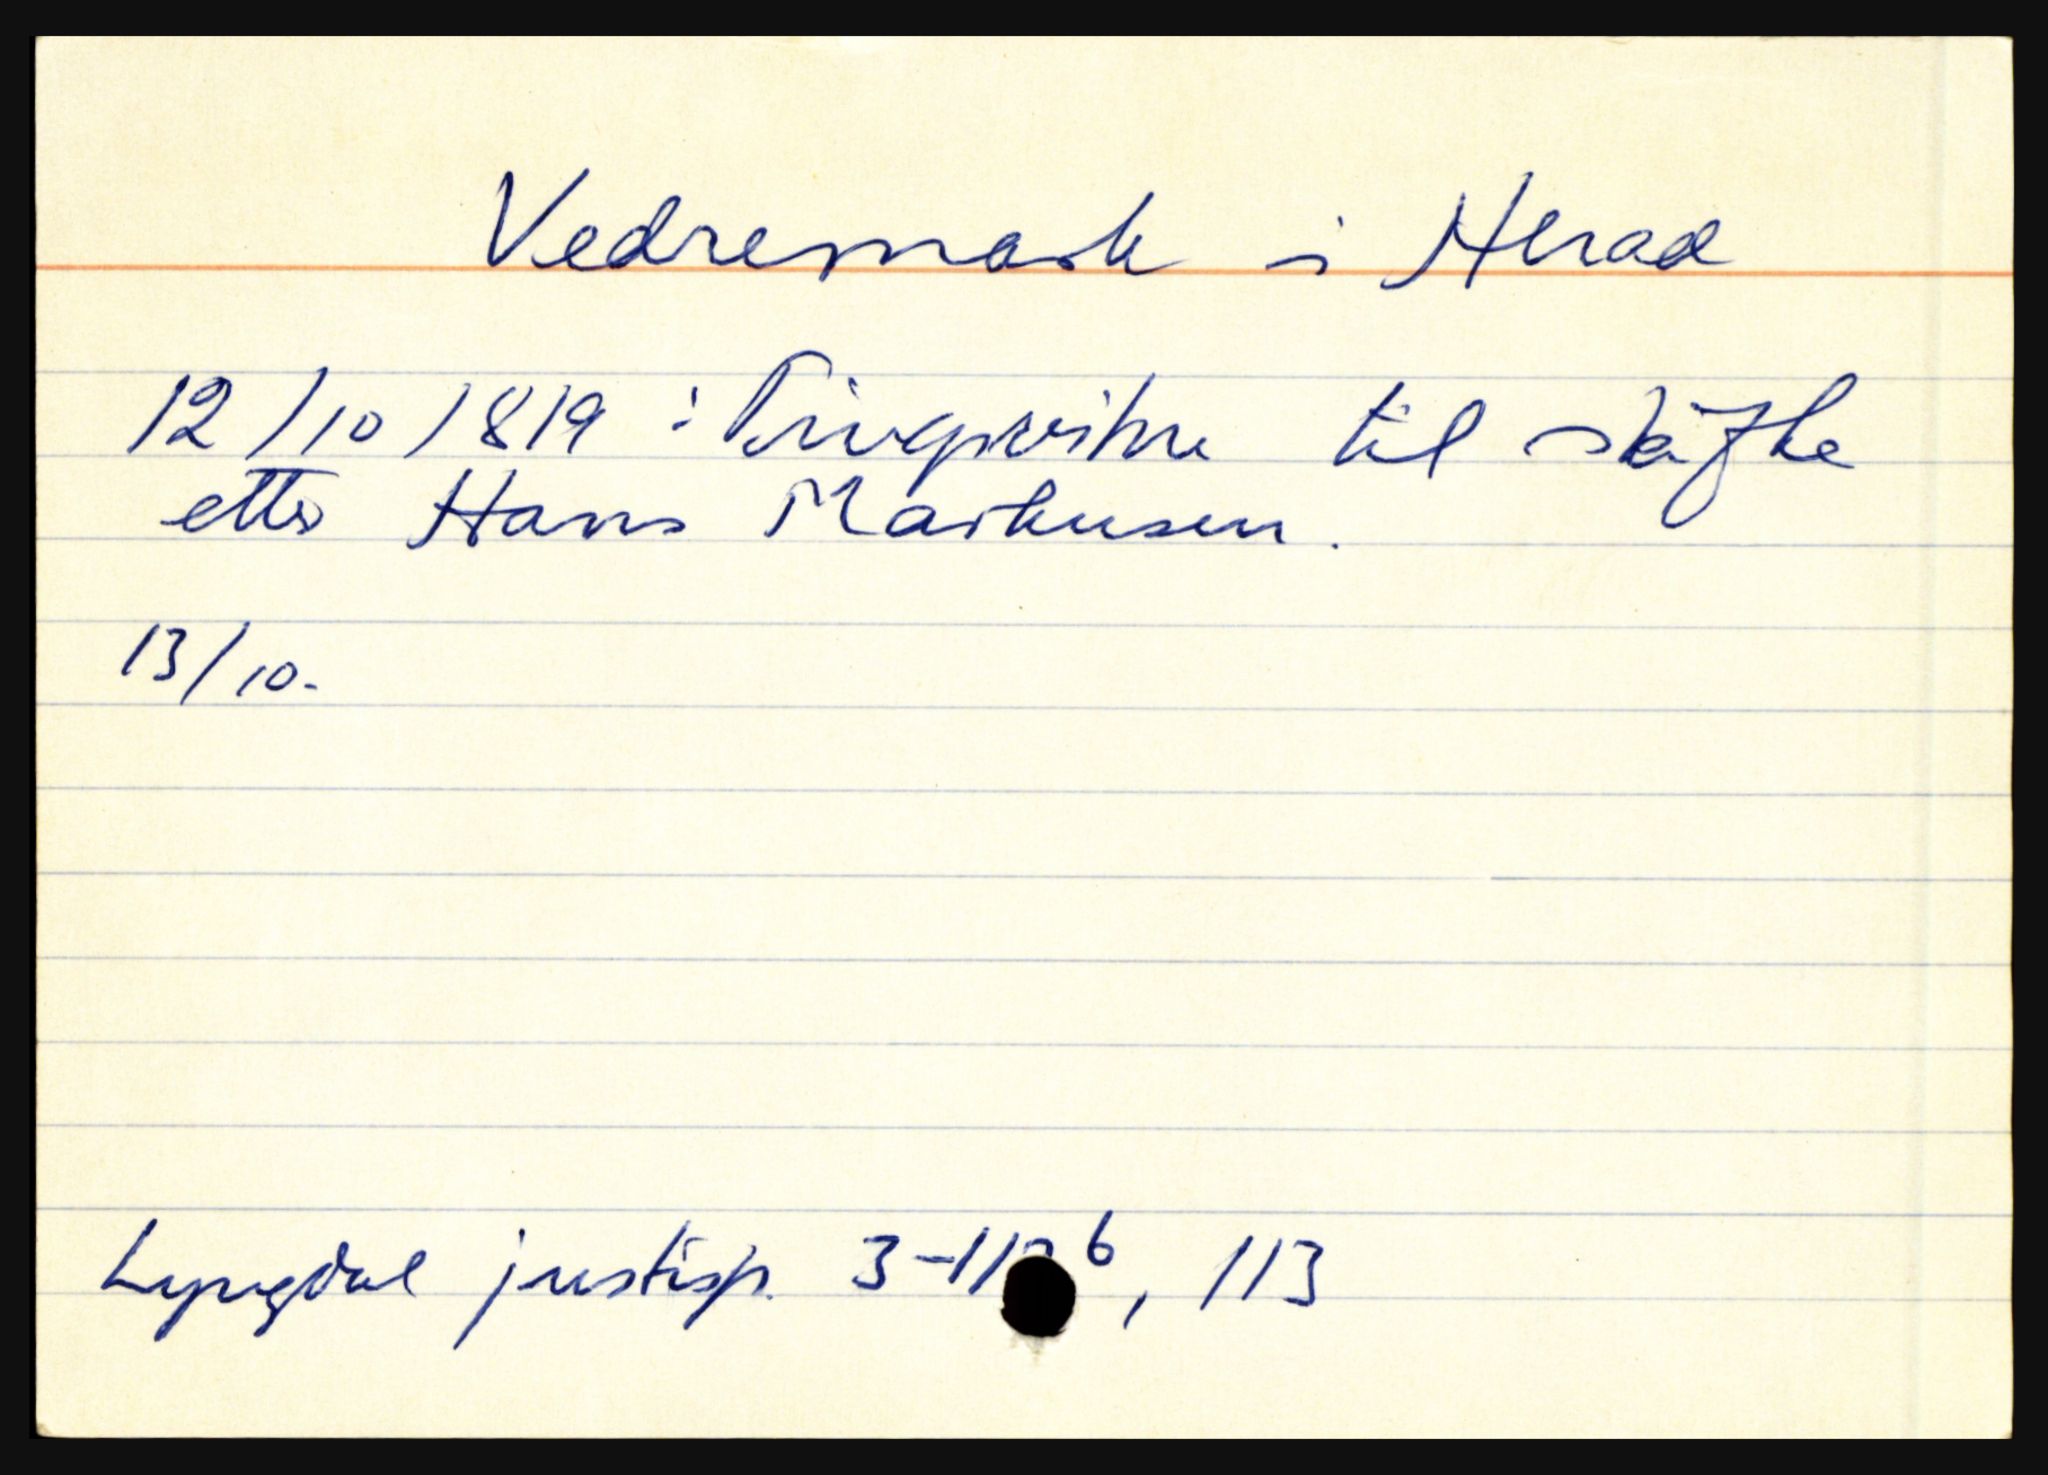 Vedremark i Herad
12/10 1819: Tingsvitne til skifte
etter Hans Markusen.
13/10.
Lyngdal justisp. 3-112 b, 113